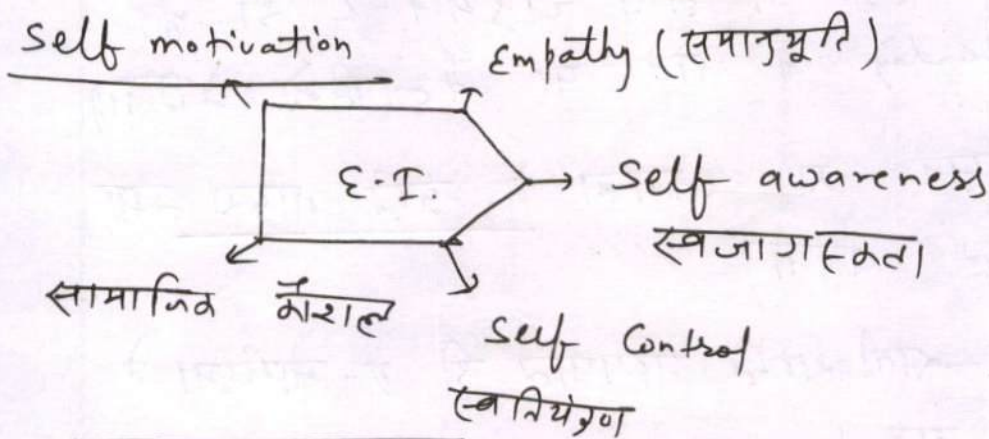 Self motivation
Empathy (समानुभूति)
E.I.
Self awareness
स्वजागरूकता
सामाजिक कौशल
Self Control
स्वनियंत्रण